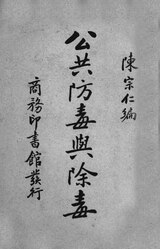 陳宗仁編
公共防毒與除毒
商務印書館發行